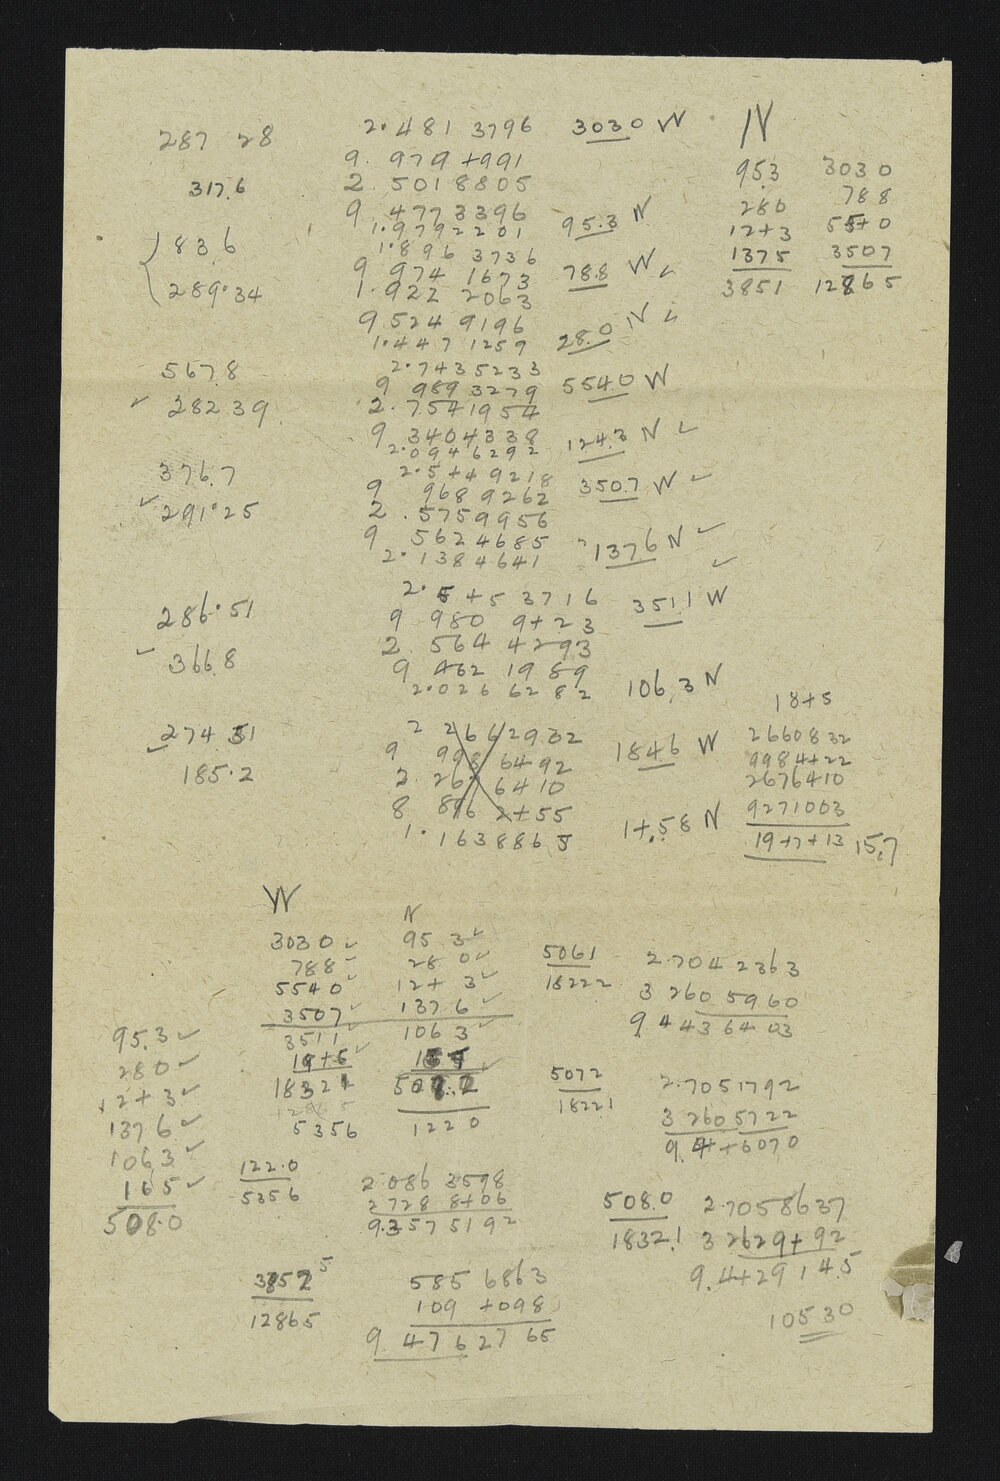 287 28
317.6
183.6
289.34
567.8
282 39
376.7
291.25
286.51
366.8
274 31
185.2
2.481 3796
9. 979 4991
2. 501 8805
9. 477 3396
1.979 2201
1.896 3736
9 974 1673
1.922 2063
9 524 9196
1.447 1259
2.743 5233
9 989 3279
2.754 1954
9 340 4338
2.094 6292
2.544 9218
9 968 9262
2.575 9956
9 562 4685
2.138 4641
2.545 3716
9 980 9423
2. 564 4293
9 462 1989
2.026 6282
2 266 2932
9 998 6492
2. 267 6410
8 896 2455
1. 163 8865
3030 W
95.3 N
78.8 W
28.0 N
554.0 W
124.3 N
350.7 W
1376 N
351.1 W
106.3 N
184.6 W
14.58 N
N
95.3 3030
280 788
1243 5540
1375 3507
3851 12865
1845
2660832
9984422
2676410
9271003
1947413 15.7
W
3030
788
5540
3507
3511
1845
18321
5356
N
95 3
28 0
124 3
137 6
106 3
1220
95.3
280
124 3
137 6
106 3
165
508.0
122.0
5356
2.086 3598
2 728 8406
9.357 5192
3852 5
12865
585 6863
109 4098
9 476 2765
5061
18222
2.704 2363
3 260 5960
9 443 6403
5072
18221
2.705 1792
3 260 5722
9.444 6070
508.0
1832.1
2.705 8637
3 262 9492
9.442 9145
10530